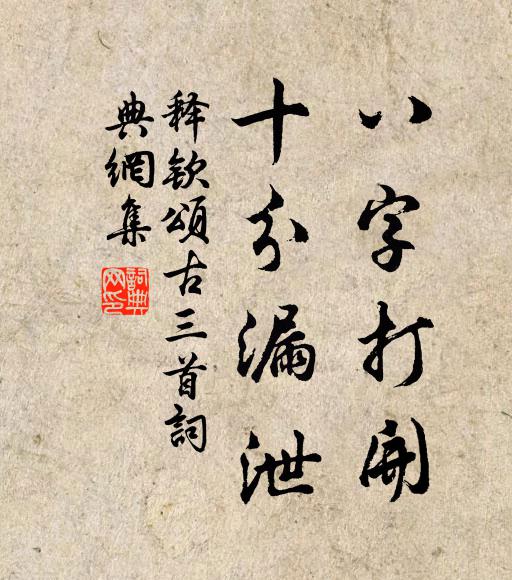 八字打開
十分漏泄
释欽頌古三首詞
典網集
詞典
网印